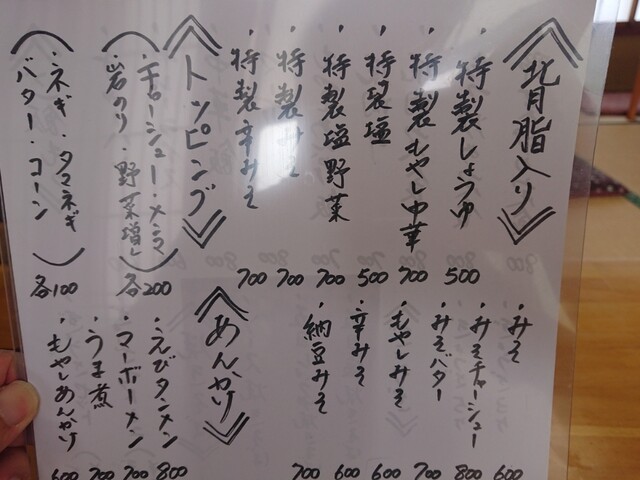 《背脂入り》
・特製しょうゆ 500
・特製もやし中華 700
・特製塩 500
・特製塩野菜 700
・特製みそ 700
・特製辛みそ 700
《トッピング》
(・チャーシュー・メンマ
・岩のり・野菜増し) 各200
(・ネギ・タマネギ
バター・コーン) 各100
・みそ 600
・みそチャーシュー 800
・みそバター 700
・もやしみそ 600
・辛みそ 600
・納豆みそ 700
《あんかけ》
・えびタンメン 800
・マーボーメン 700
・うま煮 700
・もやしあんかけ 600